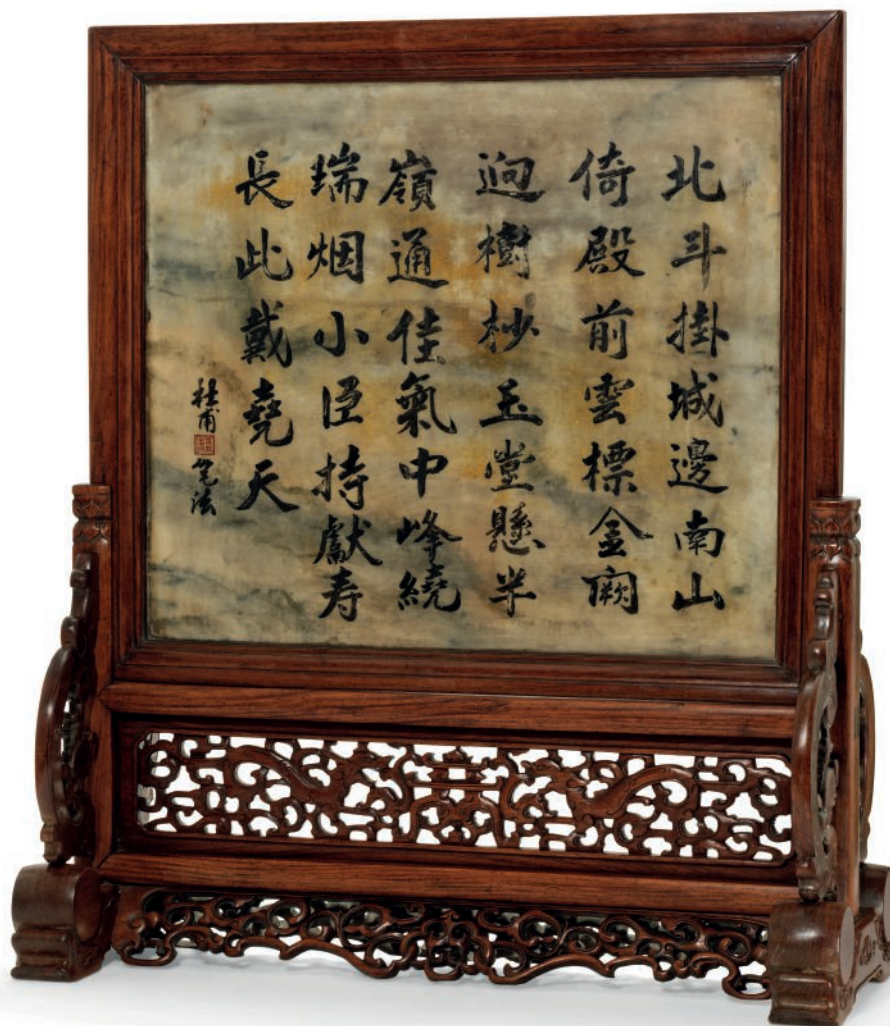 北斗掛城邊南山
倚殿前雲標金闕
逈樹杪玉堂懸半
嶺通佳氣中峰繞
瑞烟小臣持獻寿
長此戴堯天
杜甫
笔法